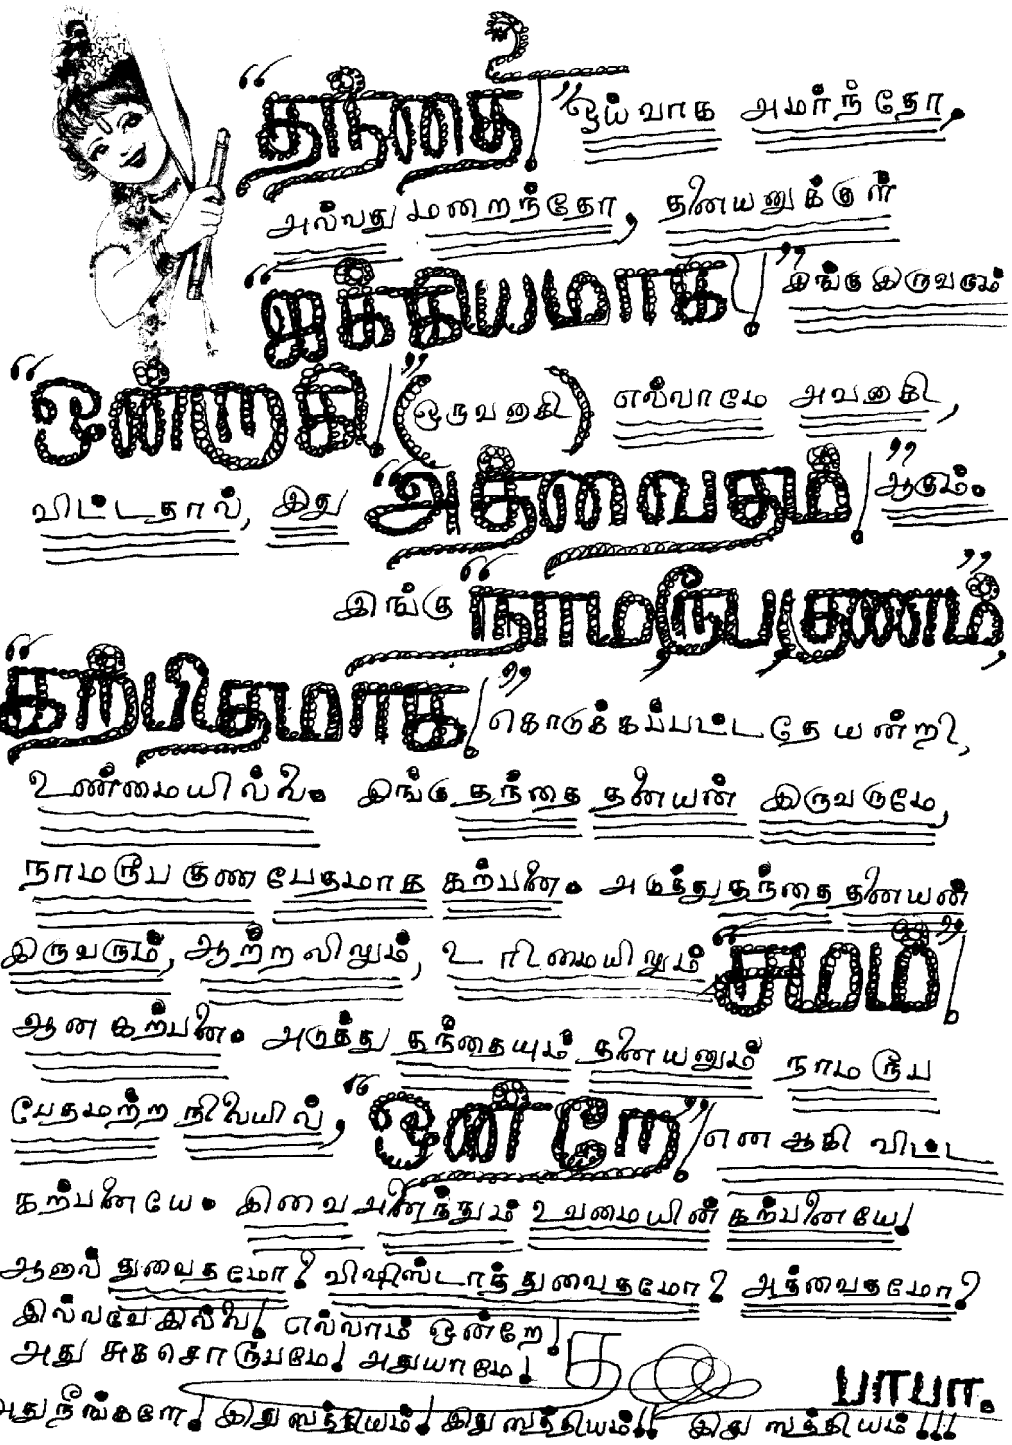 "தந்தை" ஓய்வாக அமர்ந்தோ,
அல்லது மறைந்தோ, தனையனுக்குள்
"ஐக்கியமாக" இங்கு இருவரும்
"ஒன்றாகி" (ஒருவனாகி) எல்லாமே அவனாகி,
விட்டதால், இது "அத்வைதம்" ஆகும்.
இங்கு "நாமரூப, குணம்,
கற்பிதமாக" கொடுக்கப்பட்டதேயன்றி,
உண்மையில்லை. இங்கு தந்தை தனையன் இருவருமே,
நாமரூப குண பேதமாக கற்பனை. அடுத்து தந்தை தனையன்
இருவரும், ஆற்றலிலும், உரிமையிலும் "சமம்"
ஆன கற்பனை. அடுத்து தந்தையும் தனையனும் நாமரூப
பேதமற்ற நிலையில், "ஒன்றே" என ஆகி விட்ட
கற்பனையே. இவை அனைத்தும் உவமையின் கற்பனையே!
ஆனால் துவைதமோ? விஷிஸ்டாத்துவைதமோ? அத்வைதமோ?
இல்லவே இல்லை! எல்லாம் ஒன்றே!
அது சுகசொரூபமே! அதுயாமே!
பாபா.
அதுநீங்களே! இது ஸத்தியம்! இது ஸத்தியம்!! இது ஸத்தியம்!!!